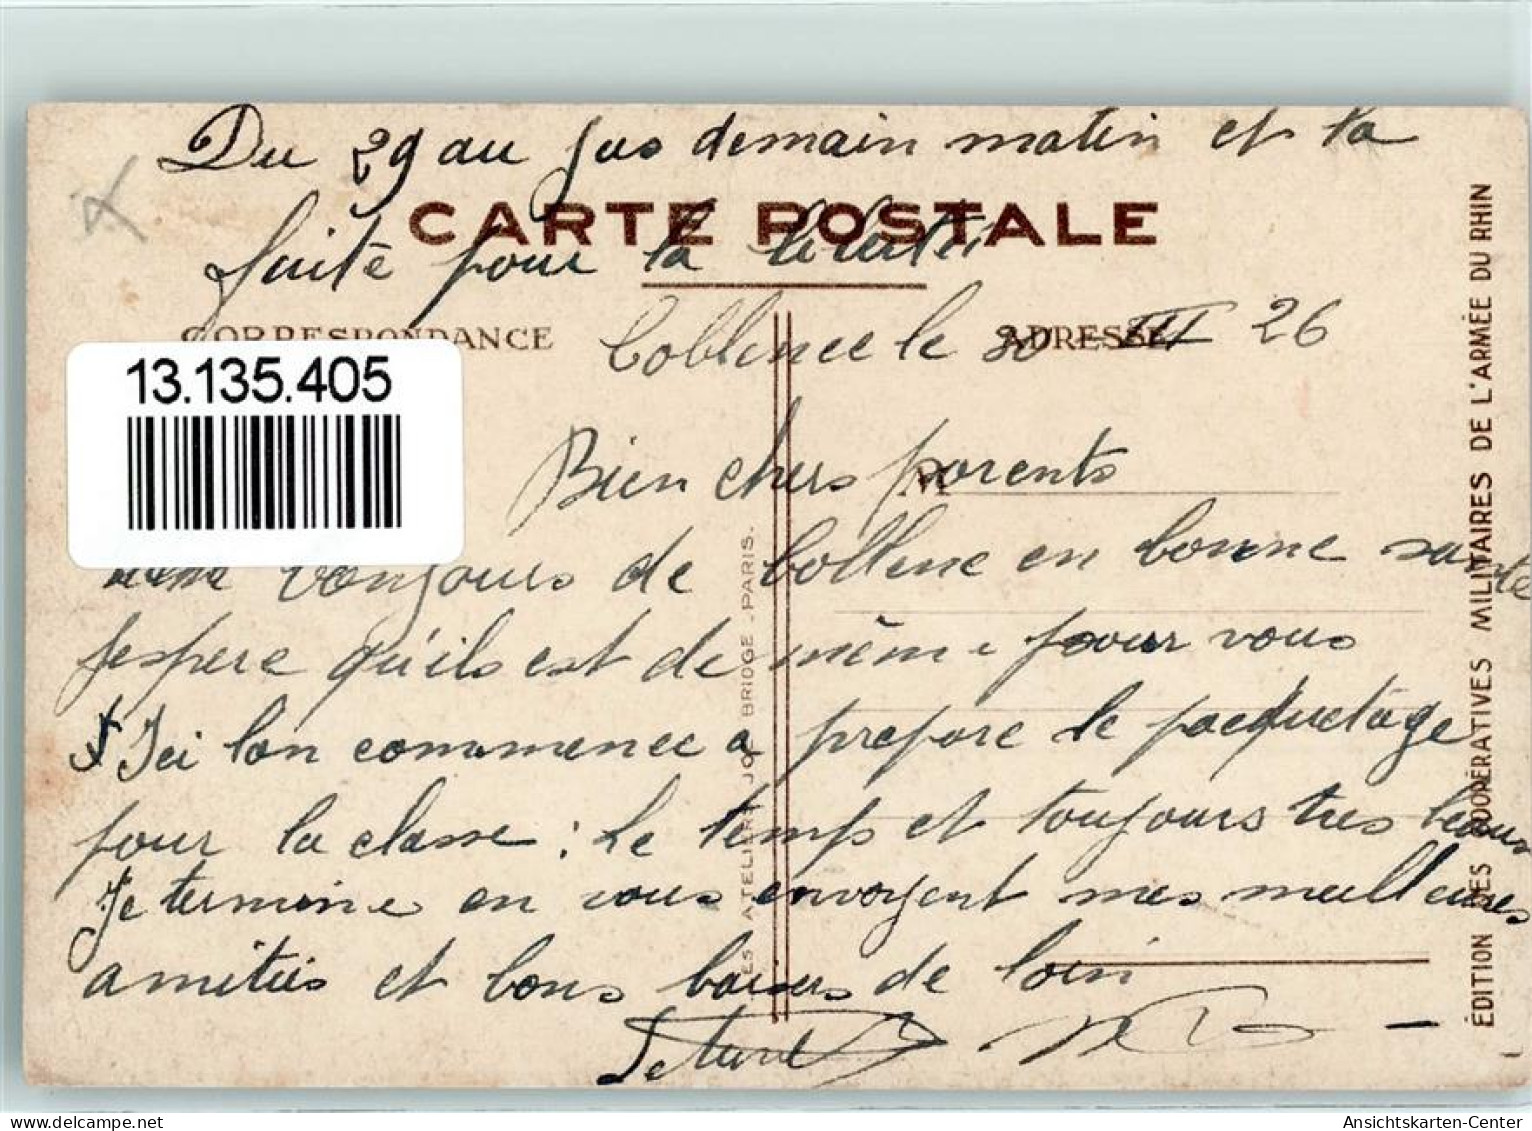 Du 29 au jus demain matin et la
CARTE POSTALE
fuite pour la liberté
CORRESPONDANCE
ADRESSE
Coblence le 30 III 26
13.135.405
Bien chers parents
M
toujours de Collene en bonne sante
jespere qu'il est de même pour vous
Ici lon commence a prepare le pacquetage
pour la classe : Le temps et toujours tres beau
Je termine en vous envoyent mes meilleures
amitiés et bons baisers de loin
LES ATELIERS JOË BRIDGE _PARIS.
ÉDITION DES COOPÉRATIVES MILITAIRES DE L'ARMÉE DU RHIN
www.delcampe.net
Ansichtskarten-Center